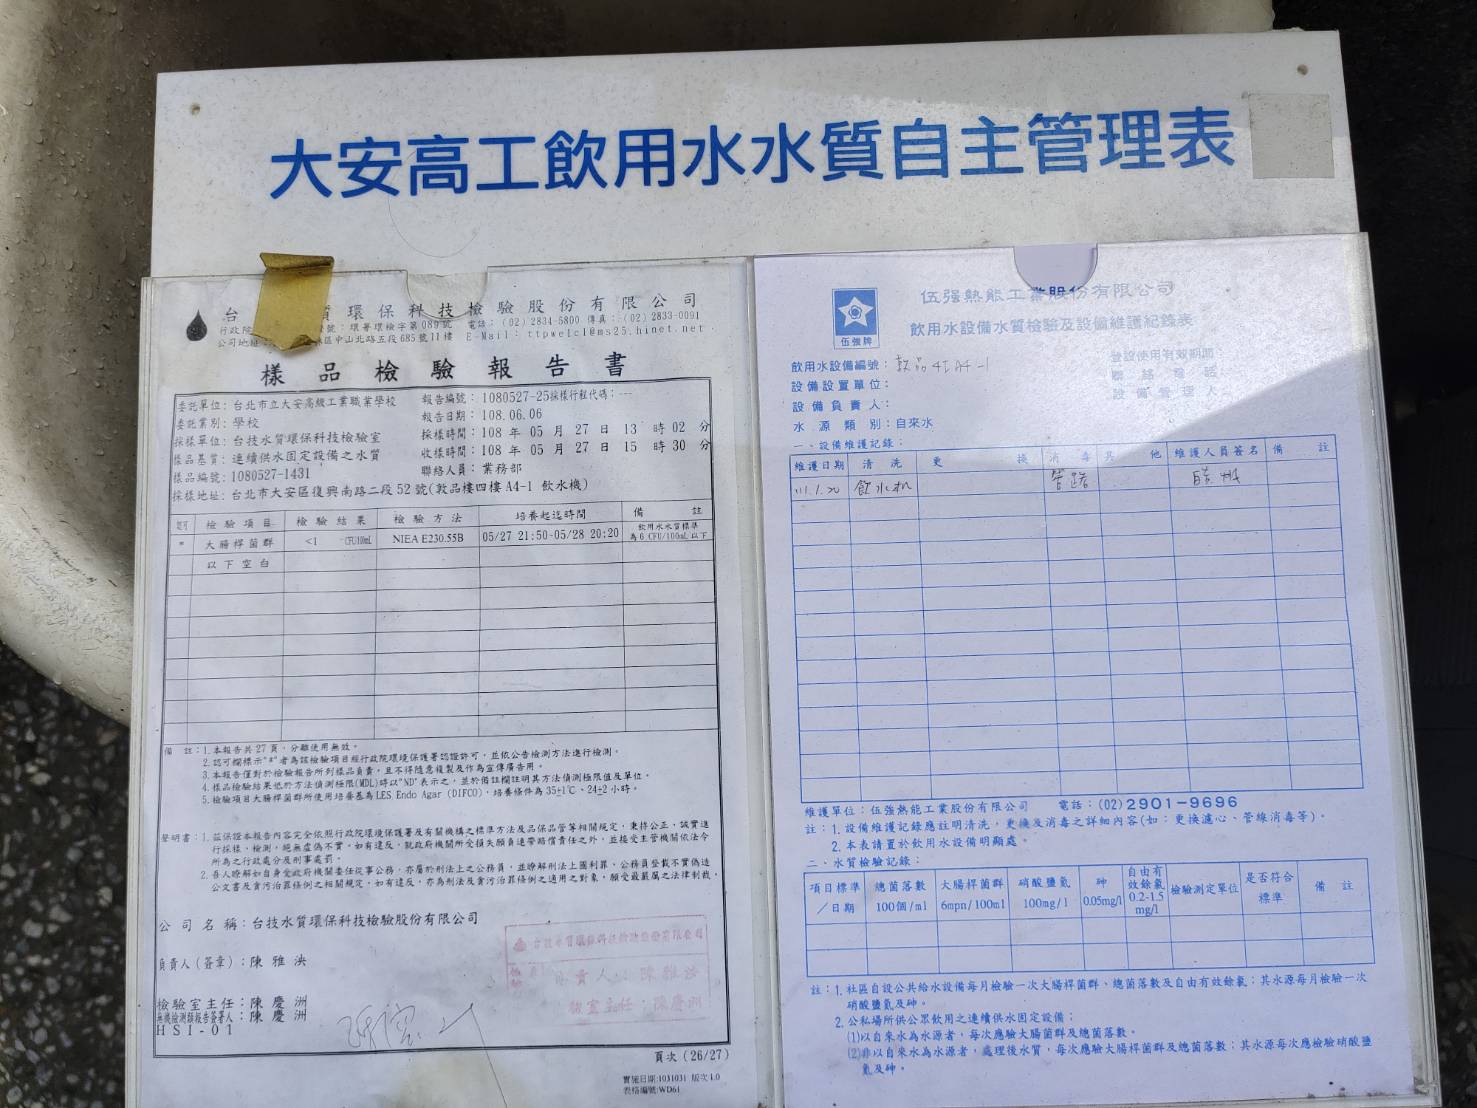 大安高工飲用水水質自主管理表
台 質環保科技檢驗股份有限公司
行政院 號：環署環檢字第089號 電話：(02)2834-5800 傳真：(02)2833-0091
公司地址 區中山北路五段685號11樓 E-Mail：ttpwelcl@ms25.hinet.net
樣品檢驗報告書
委託單位：台北市立大安高級工業職業學校 報告編號：1080527-25採樣行程代碼：---
委託業別：學校 報告日期：108.06.06
採樣單位：台技水質環保科技檢驗室 採樣時間：108 年 05 月 27 日 13 時 02 分
樣品基質：連續供水固定設備之水質 收樣時間：108 年 05 月 27 日 15 時 30 分
樣品編號：1080527-1431 聯絡人員：業務部
採樣地址：台北市大安區復興南路二段52號(敦品樓四樓A4-1 飲水機)
認可 檢驗項目 檢驗結果 檢驗方法 培養起迄時間 備註
* 大腸桿菌群 <1 CFU/100mL NIEA E230.55B 05/27 21:50-05/28 20:20 飲用水水質標準為6 CFU/100mL以下
以下空白
備 註：1.本報告共27頁，分離使用無效。
2.認可欄標示"*"者為該檢驗項目經行政院環境保護署認證許可，並依公告檢測方法進行檢測。
3.本報告僅對於檢驗報告所列樣品負責，且不得隨意複製及作為宣傳廣告用。
4.樣品檢驗結果低於方法偵測極限(MDL)時以"ND"表示之，並於備註欄註明其方法偵測極限值及單位。
5.檢驗項目大腸桿菌群所使用培養基為LES Endo Agar (DIFCO)，培養條件為35±1℃、24±2小時。
聲明書：1.茲保證本報告內容完全依照行政院環境保護署及有關機構之標準方法及品保品管等相關規定，秉持公正、誠實進
行採樣、檢測，絕無虛偽不實，如有違反，就政府機關所受損失願負連帶賠償責任之外，並接受主管機關依法令
所為之行政處分及刑事處罰。
2.吾人瞭解如自身受政府機關委任從事公務，亦屬於刑法上之公務員，並瞭解刑法上圖利罪、公務員登載不實偽造
公文書及貪污治罪條例之相關規定，如有違反，亦為刑法及貪污治罪條例之適用之對象，願受最嚴厲之法律制裁。
公司名稱：台技水質環保科技檢驗股份有限公司
負責人(簽章)：陳雅泱
檢驗室主任：陳慶洲
無機檢測類報告簽署人：陳慶洲
HSI-01
台技水質環保科技檢驗股份有限公司
負責人：陳雅泱
驗室主任：陳慶洲
頁次(26/27)
實施日期:1031031 版次1.0
表格編號:WD61
伍強牌
伍强熱能工業股份有限公司
飲用水設備水質檢驗及設備維護紀錄表
飲用水設備編號：敦品4F A4-1 登設使用有效期間
設備設置單位： 聯絡電話：
設備負責人： 設備管理人：
水源類別：自來水
一、設備維護記錄：
維護日期 清洗 更換 消毒 其他 維護人員簽名 備註
111.1.20 飲水机 管路
維護單位：伍強熱能工業股份有限公司 電話：(02)2901-9696
註：1.設備維護記錄應註明清洗，更換及消毒之詳細內容(如：更換濾心、管線消毒等)。
2.本表請置於飲用水設備明顯處。
二、水質檢驗記錄：
項目標準／日期 總菌落數100個/ml 大腸桿菌群6mpn/100ml 硝酸鹽氮100mg/l 砷0.05mg/l 自由有效餘氯0.2-1.5mg/l 檢驗測定單位 是否符合標準 備註
註：1.社區自設公共給水設備每月檢驗一次大腸桿菌群、總菌落數及自由有效餘氯；其水源每月檢驗一次
硝酸鹽氮及砷。
2.公私場所供公眾飲用之連續供水固定設備：
(1)以自來水為水源者，每次應驗大腸菌群及總菌落數。
(2)非以自來水為水源者，處理後水質，每次應驗大腸桿菌群及總菌落數；其水源每次應檢驗硝酸鹽
氮及砷。